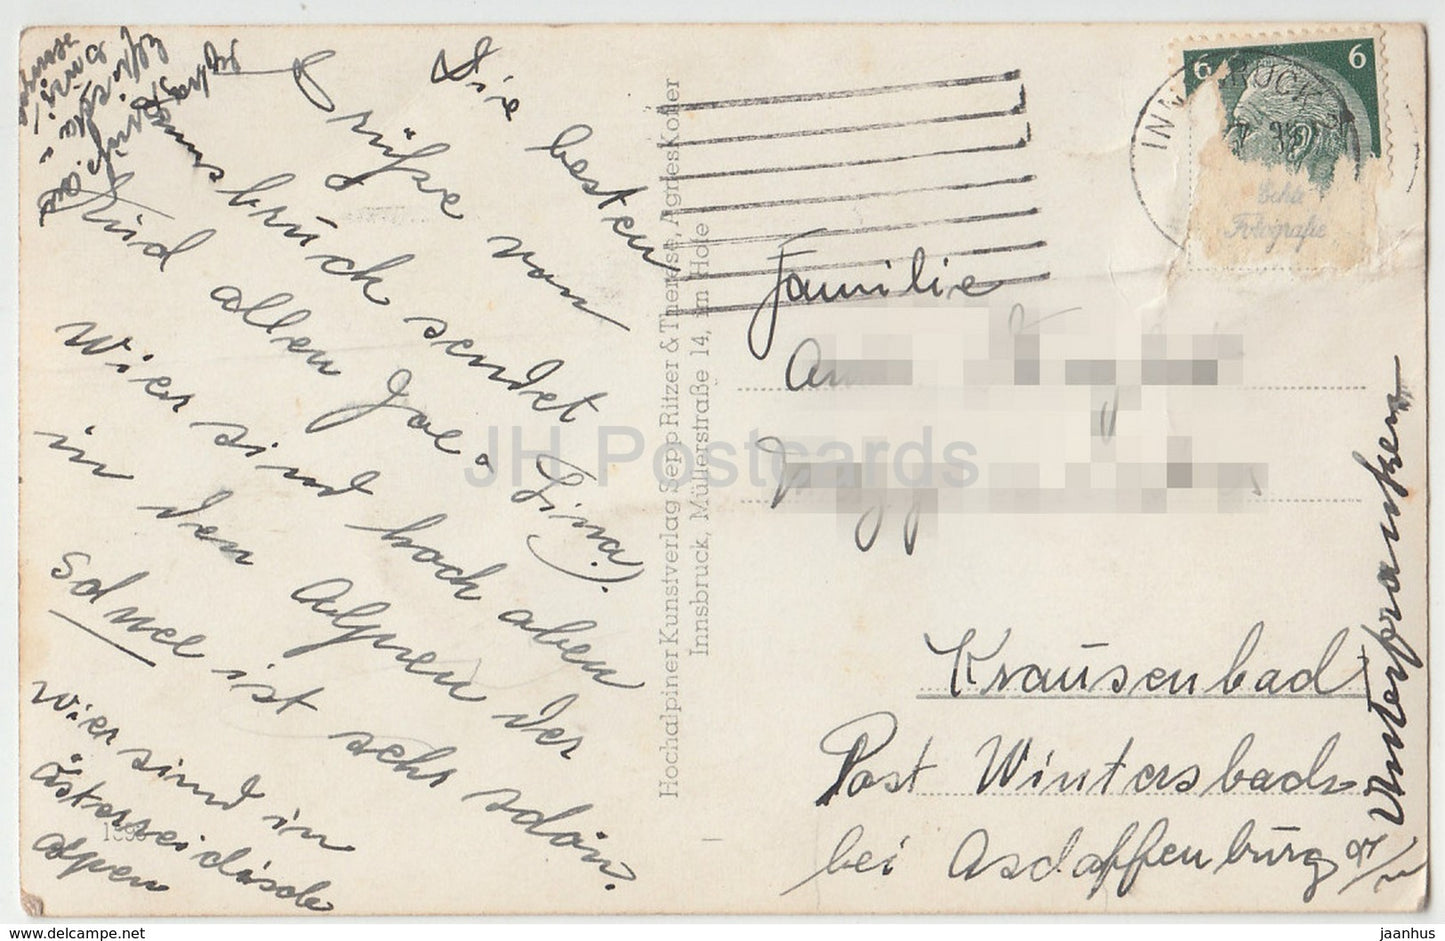 Die besten
Grüße von
Insbruck sendet Lina.
und allen Joe.
Wier sind hoch aben
in den Alpen der
Schnee ist sehr schön.
Wier sind in
Östereichische
Alpen
1396
Hochalpiner Kunstverlag Sepp Ritzer & Therese, Agnes Koller
Innsbruck, Müllerstraße 14, im Hofe
INNSBRUCK
6 6
Echte
Fotografie
Familie
Krausenbad
Post Wintersbach
bei Aschaffenburg a/M
Unterfranken
JH Postcards
jaanhus
www.delcampe.net